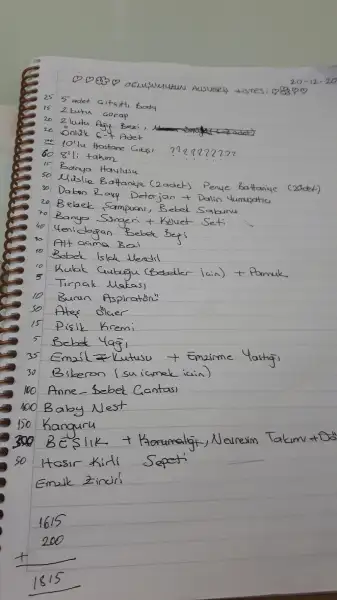 20-12-20
OĞLUMUZUN ALIŞVERİŞ LİSTESİ
25 5 adet Çıtçıtlı Body
15 2 kutu Çorap
20 2 kutu Ağız Bezi,
20 6-7 Adet
10'lu Hastane Çıkışı ?????????
60 8'li takım
15 Banyo Havlusu
50 Müslin Battaniye (2 adet) Penye Battaniye (2 adet)
30 Dalan Roxy Deterjan + Dalin Yumuşatıcı
20 Bebek Şampuanı, Bebek Sabunu
70 Banyo Süngeri + Küvet Seti
40 Yenidoğan Bebek Bezi
30 Alt açma Bezi
10 Bebek Islak Mendil
10 Kulak Çubuğu (Bebekler için) + Pamuk
5 Tırnak Makası
10 Burun Aspiratörü
50 Ateş Ölçer
15 Pişik Kremi
5 Bebek Yağı
35 Emzik Kutusu + Emzirme Yastığı
30 Biberon (su içmek için)
100 Anne-Bebek Çantası
100 Baby Nest
150 Kanguru
300 BEŞİK + Korumalığı, Nevresim Takımı +
50 Hasır Kirli Sepeti
Emzik Zinciri
1615
200
+
1815